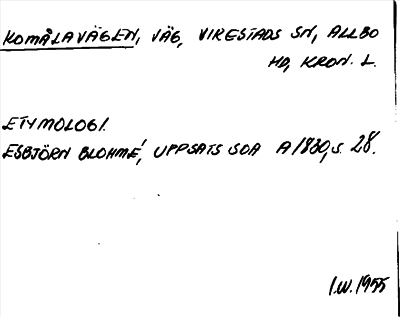 KOMÅLAVÄGEN, VÄG, VIRESTADS SN, ALLBO
HD, KRON. L.
ETYMOLOGI.
ESBJÖRN BLOHMÉ, UPPSATS SOA A1830, S. 28.
I.W. 1955